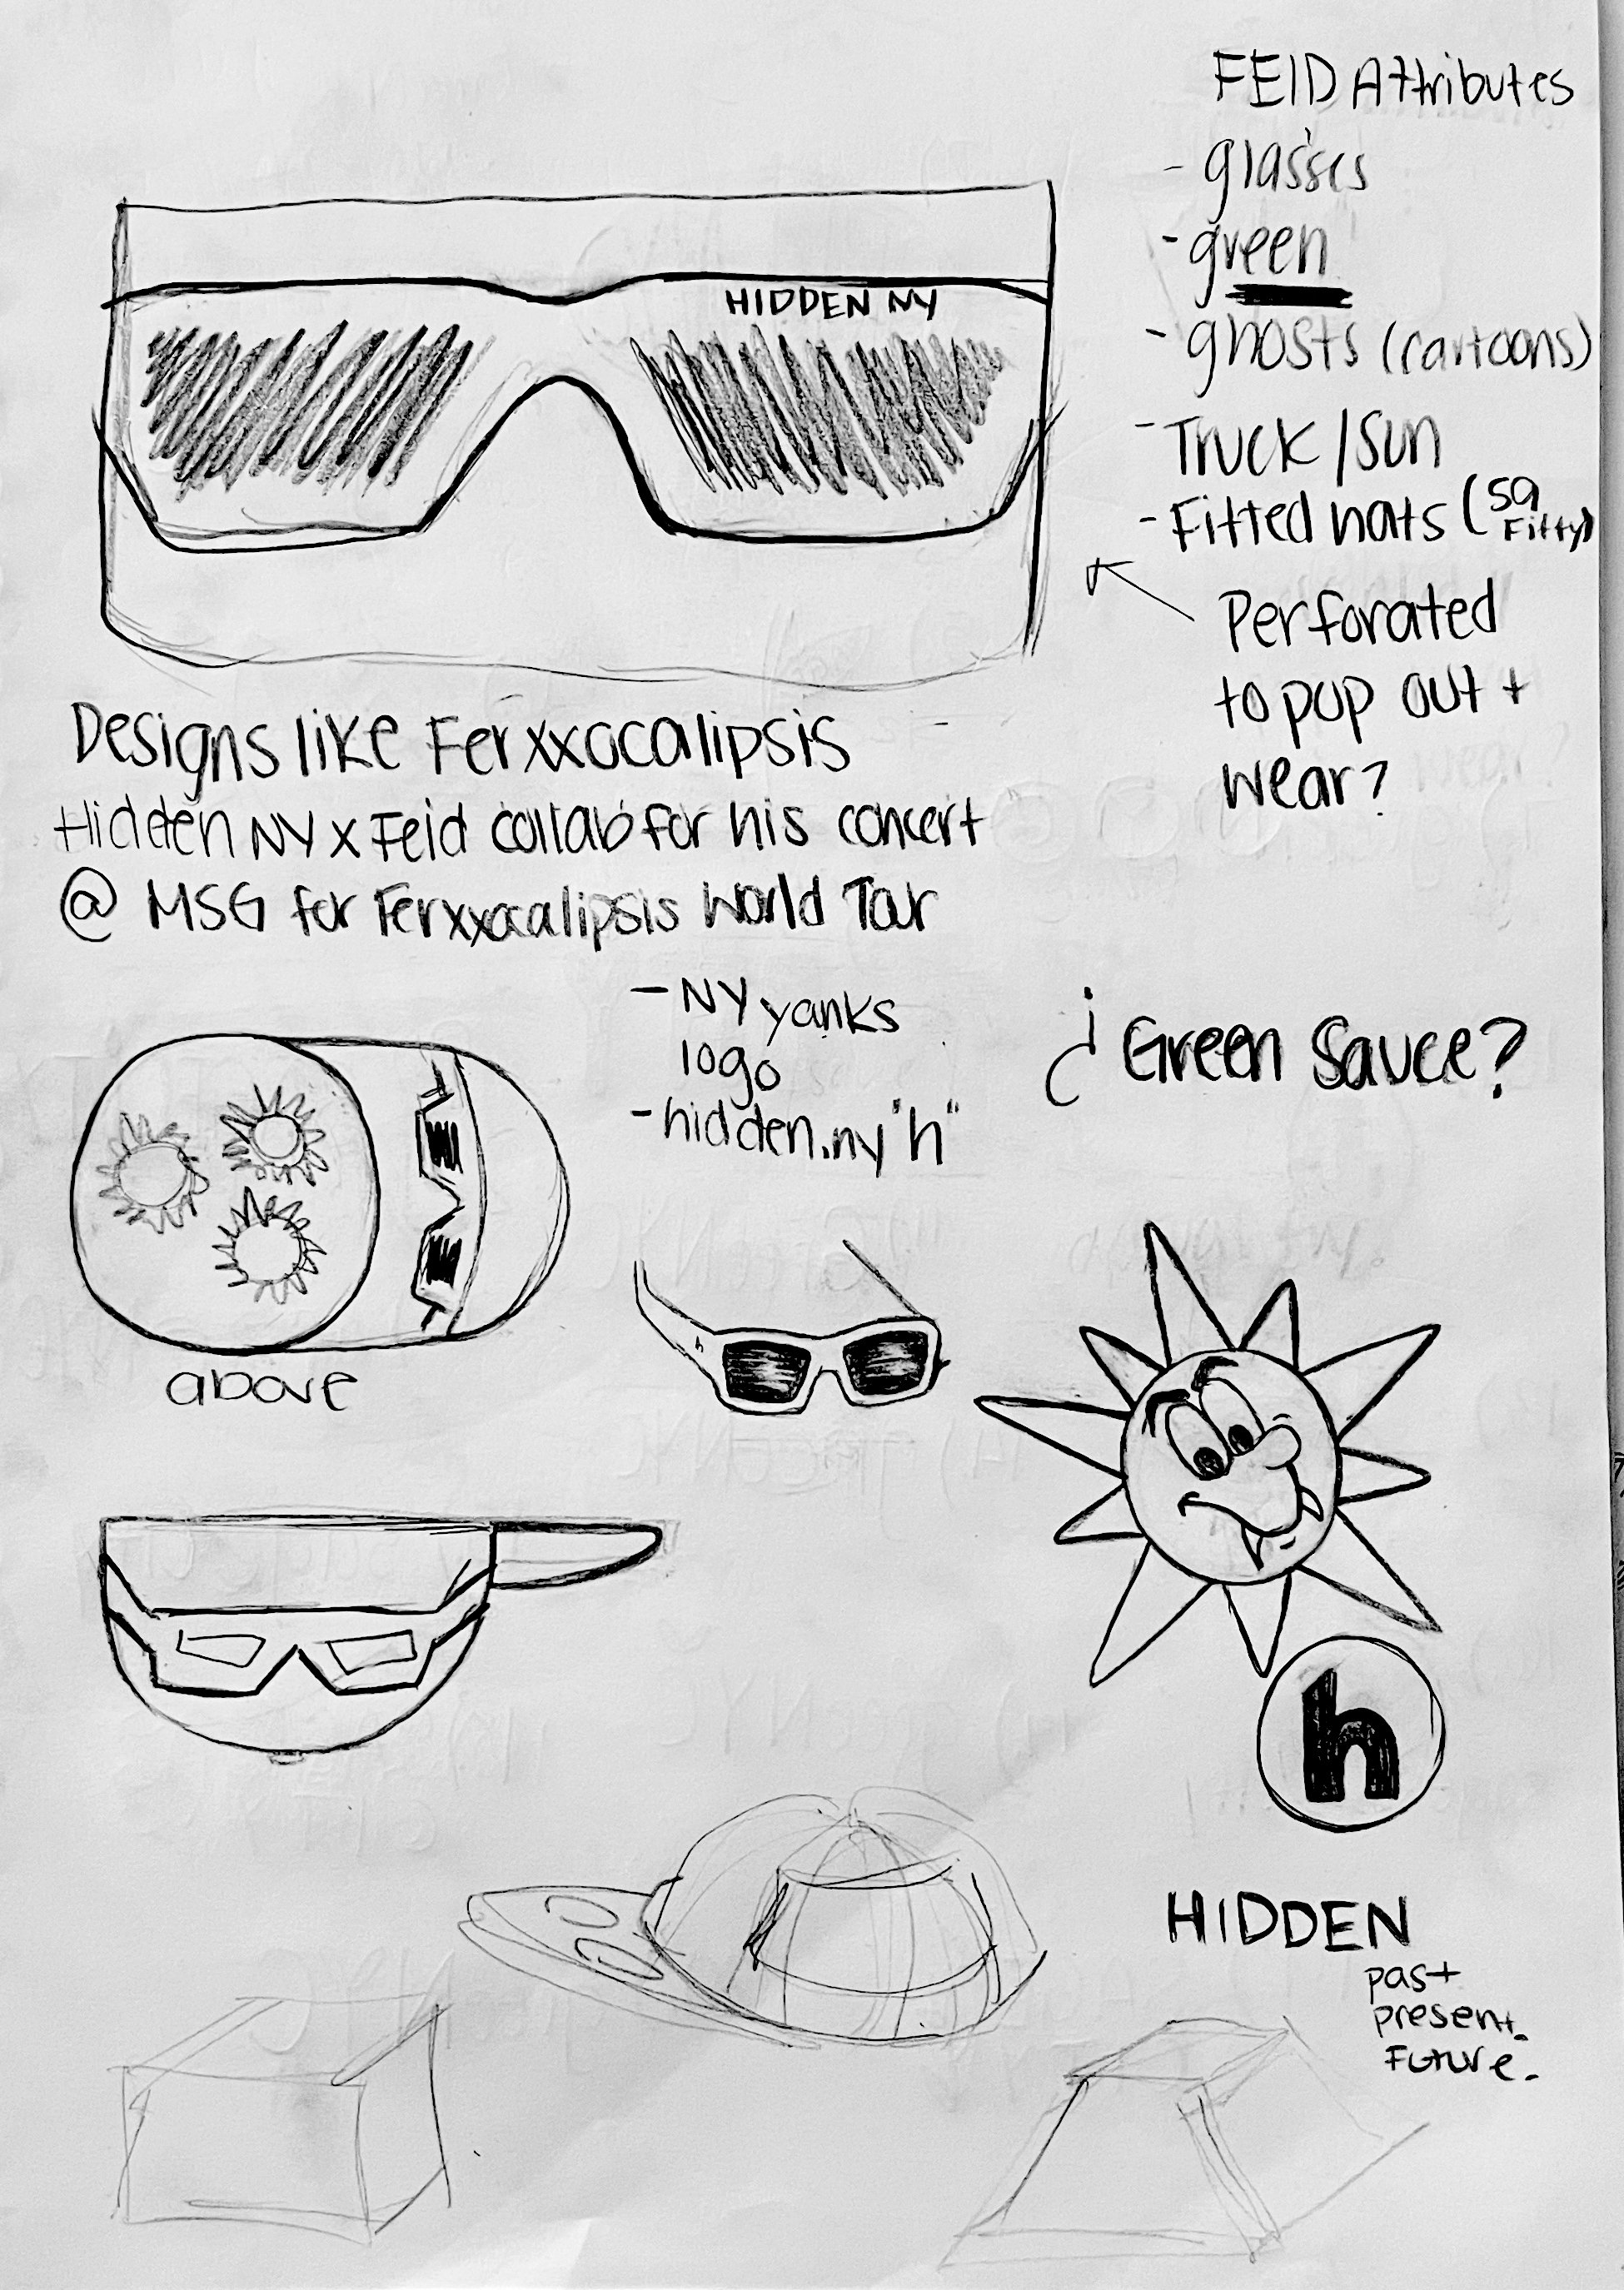 FEID Attributes
- glasses
- green
- ghosts (cartoons)
- Truck / Sun
- Fitted hats (59 Fifty)
Perforated
to pop out +
wear?
HIDDEN NY
Designs like Ferxxocalipsis
Hidden NY x Feid collab for his concert
@ MSG for Ferxxocalipsis World Tour
- NY yanks
logo
- hidden.ny "h"
¿Green Sauce?
above
h
HIDDEN
past
present.
Future.